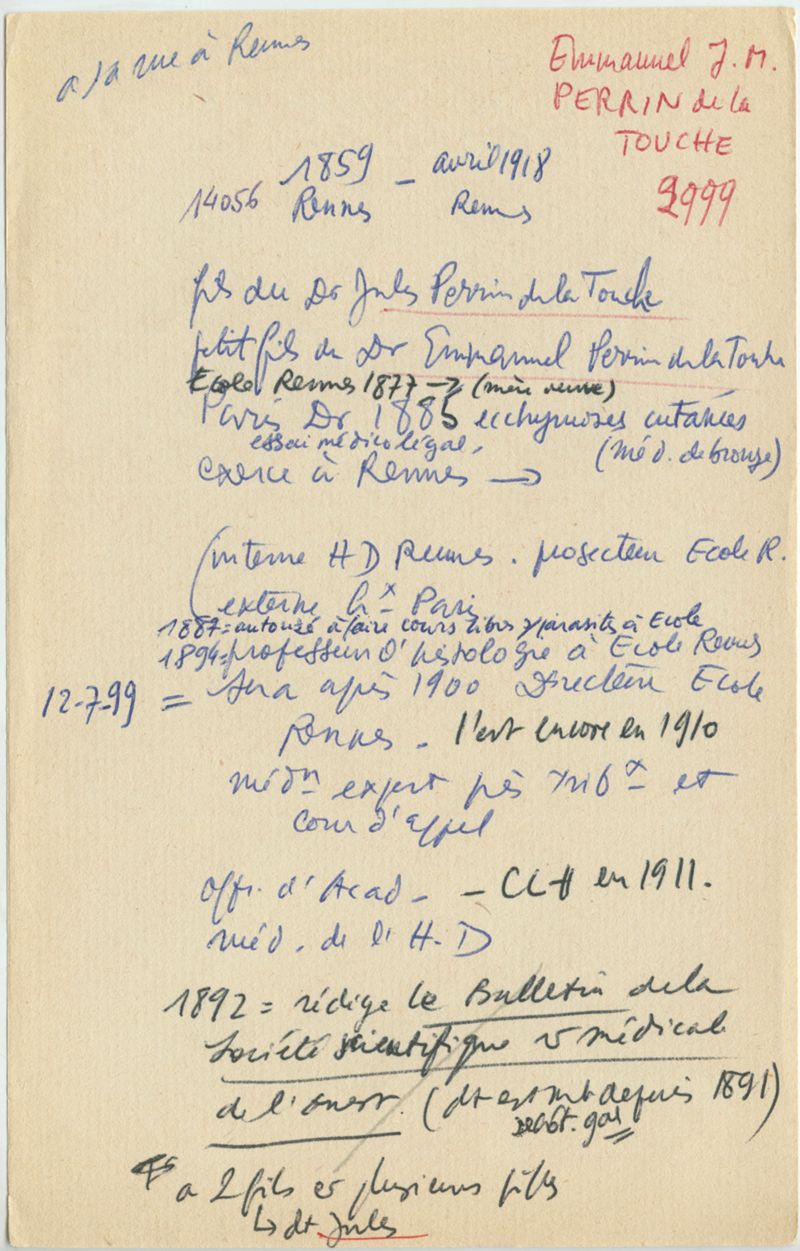 a sa rue à Rennes
Emmanuel J. M.
PERRIN de la
TOUCHE
2999
1859 - avril 1918
14056 Rennes Rennes
fils du Dr Jules Perrin de la Touche
petit fils du Dr Emmanuel Perrin de la Touche
Ecole Rennes 1877 → (mère veuve)
Paris Dr 1885 ecchymoses cutanées
essai médico légal. (méd. de bronze)
exerce à Rennes →
(interne H D Rennes. prosecteur Ecole R.
externe hx Paris
1887 = autorisé à faire cours libres parasites à Ecole
1894 = professeur d'histologie à Ecole Rennes
12-7-99 = sera après 1900 Directeur Ecole
Rennes - l'est encore en 1910
médn expert près tribx et
cour d'appel
offr. d'Acad - - CLH en 1911.
méd. de l'H-D
1892 = rédige le Bulletin de la
Société scientifique et médicale
de l'ouest. (dt est depuis 1891)
gal
a 2 fils et plusieurs filles
↳ dt Jules